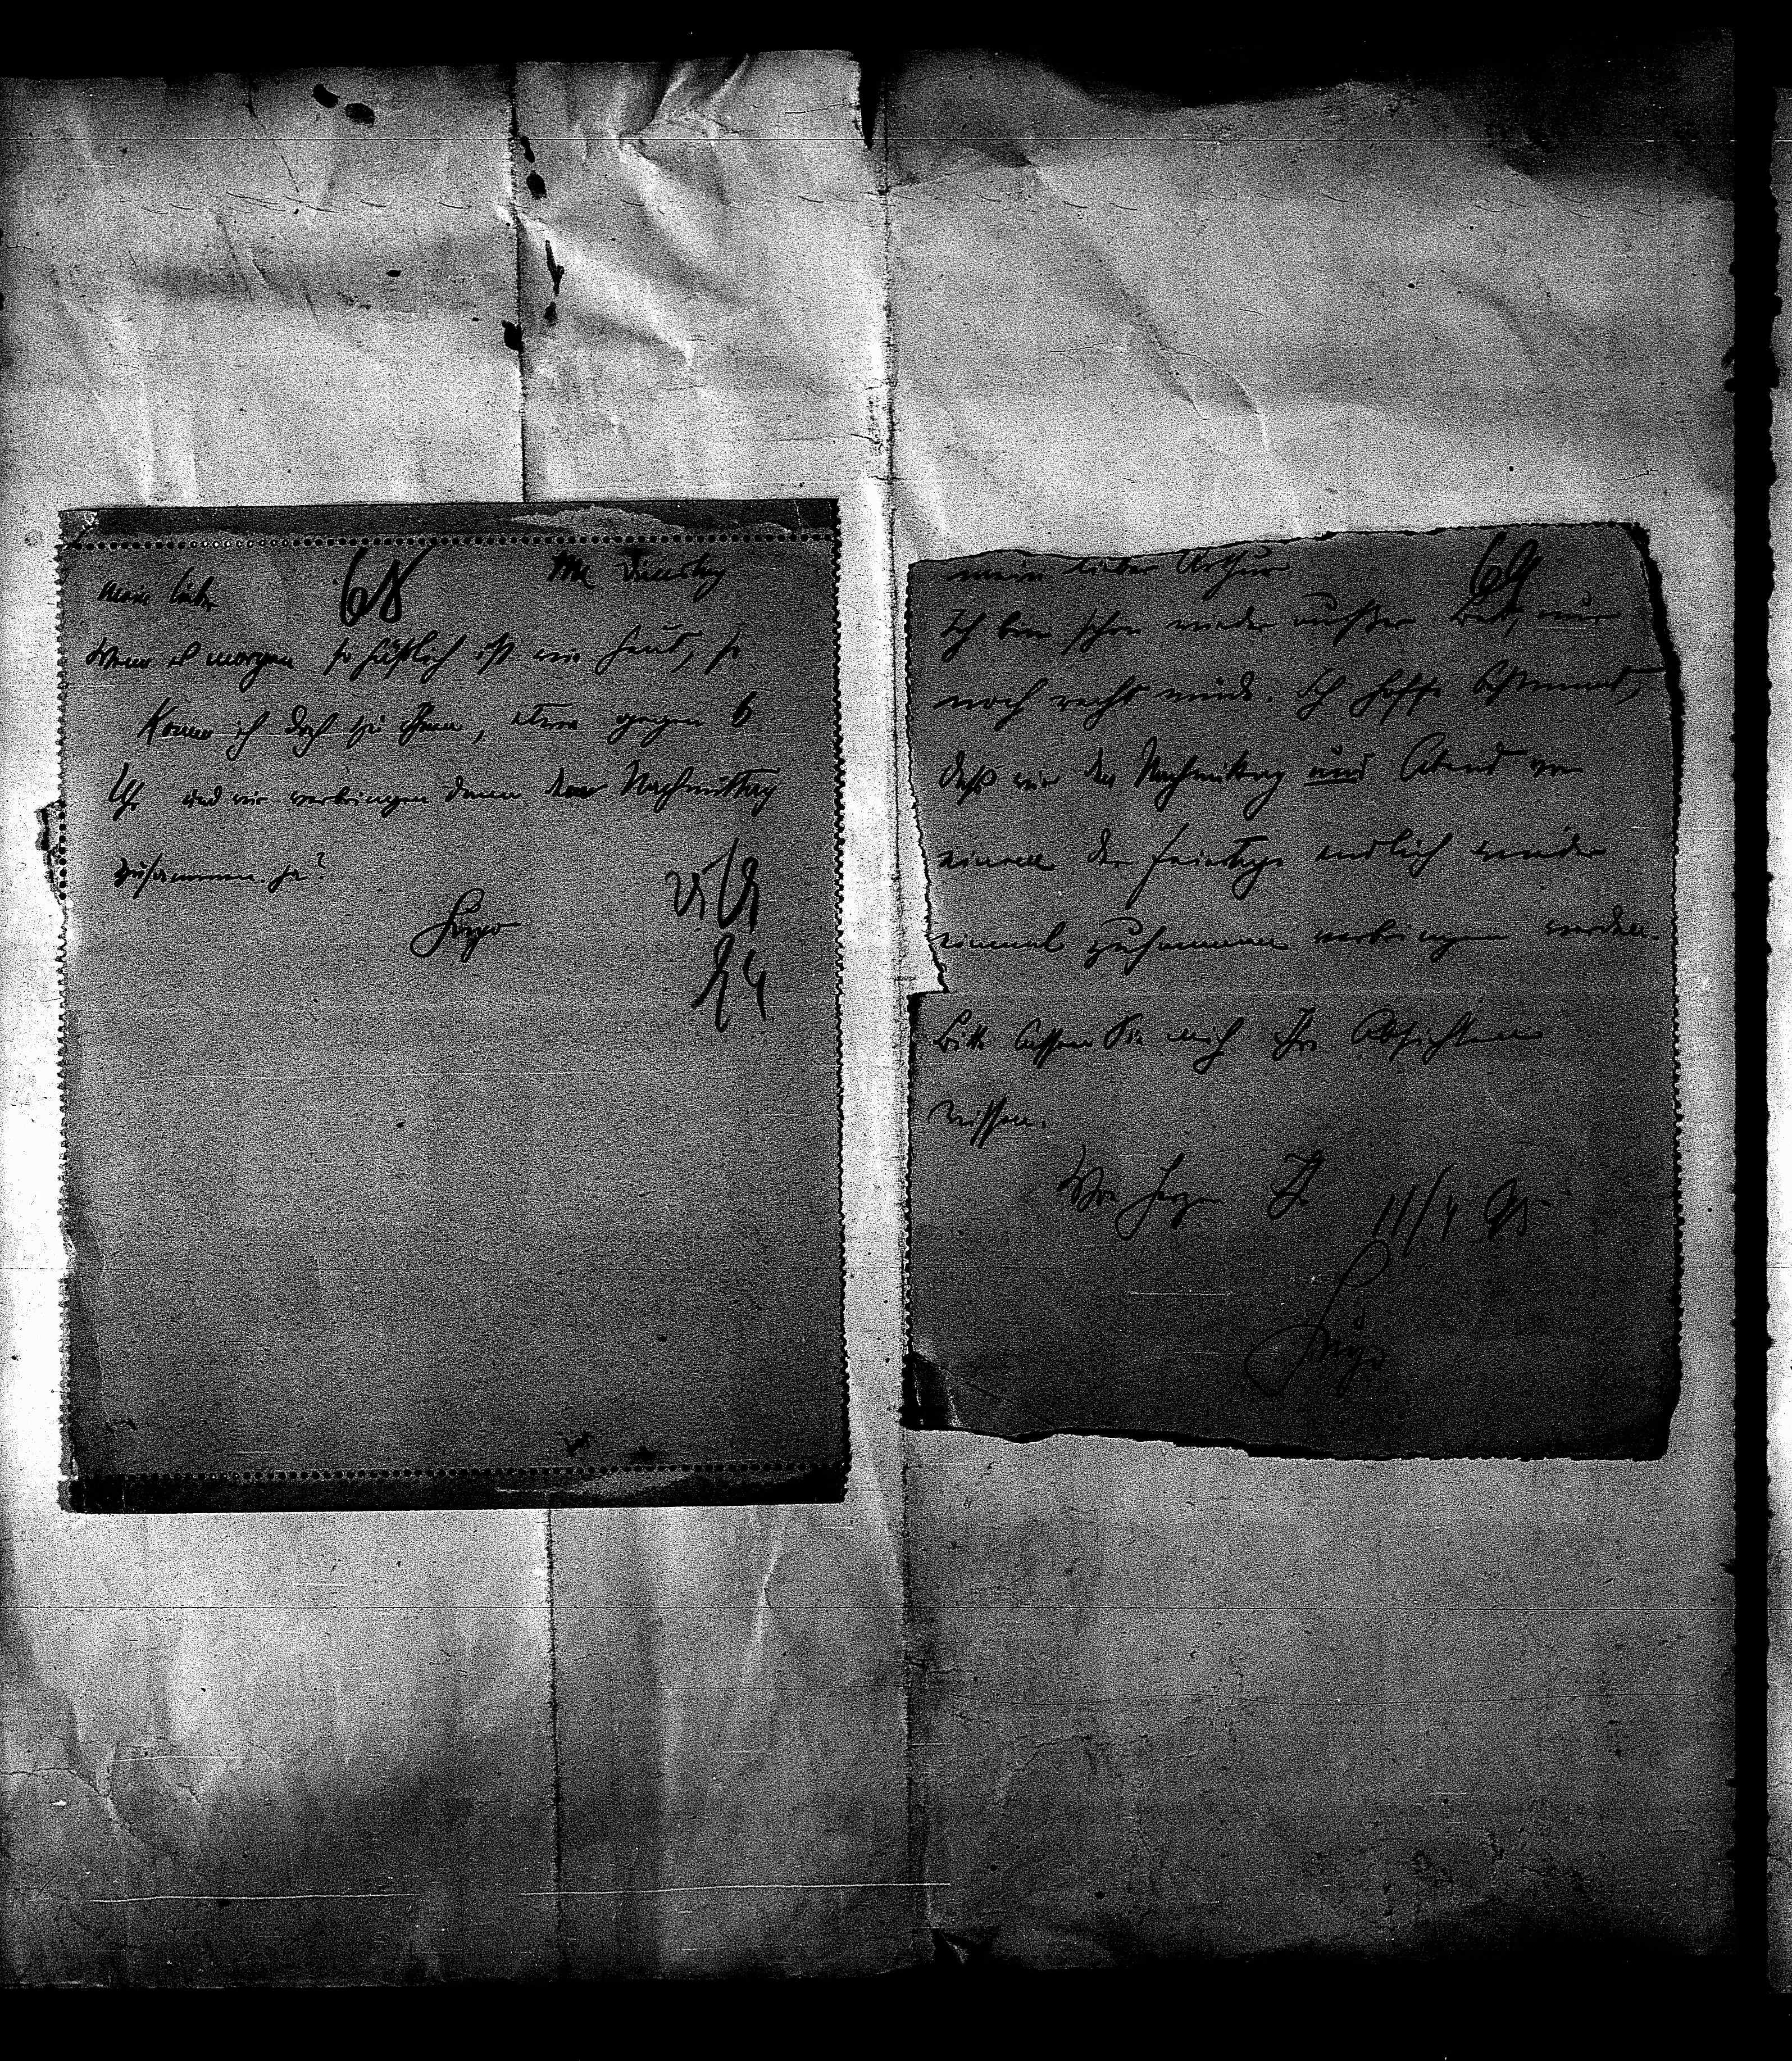 68
Dienstag
mein lieber
Wenn es morgen so häßlich ist wie heut, so
komm ich doch zu Ihnen, etwa gegen 6
Uhr und wir verbringen dann den Nachmittag
zusammen. ja?
Hugo
69
mein lieber Arthur
Ich bin schon wieder außer Bett, nur
noch recht müde. Ich hoffe bestimmt,
daß wir den Nachmittag und Abend von
einem der Feiertage endlich wieder
einmal zusammen verbringen werden.
Bitte lassen Sie mich Ihre Absichten
wissen.
Von Herzen Ihr
11/4 95
Hugo